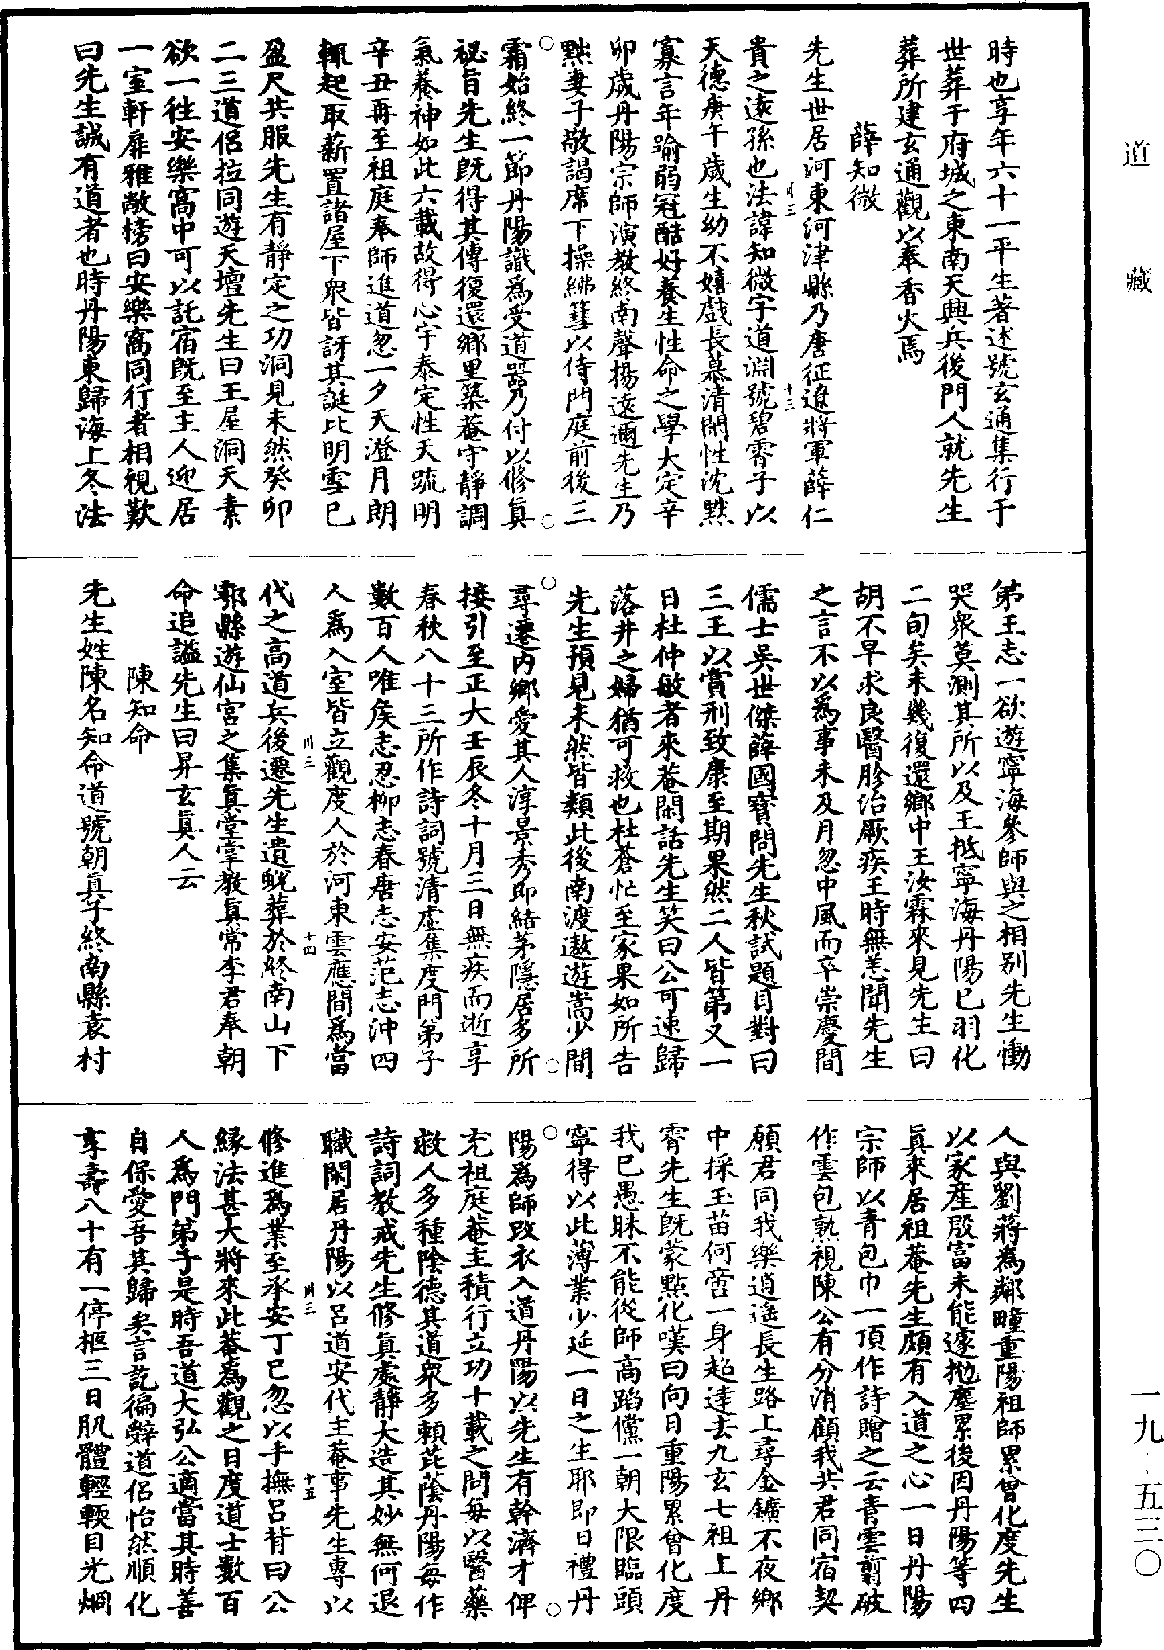 道藏
時也享年六十一平生著述號玄通集行于
世葬于府城之東南天興兵後門人就先生
葬所建玄通觀以奉香火焉
薛知微
先生世居河東河津縣乃唐征遼將軍薛仁
貴之遠孫也法諱知微字道淵號碧霄子以
天德庚午歲生幼不嬉戲長慕清閑性沈默
寡言年踰弱冠酷好養生性命之學大定辛
卯歲丹陽宗師演教終南聲揚遠邇先生乃
黜妻子敬謁席下操紼篲以侍門庭前後三
霜始終一節丹陽識為受道器乃付以修真
祕旨先生既得其傳復還鄉里築菴守靜調
氣養神如此六載故得心宇泰定性天疏明
辛丑再至祖庭奉師進道忽一夕天澄月朗
輒起取薪置諸屋下衆皆訝其誕比明雪已
盈尺共服先生有靜定之功洞見未然癸卯
二三道侶拉同遊天壇先生曰王屋洞天素
欲一往安樂窩中可以託宿既至主人迎居
一室軒扉雅敞榜曰安樂窩同行者相視歎
曰先生誠有道者也時丹陽東歸海上冬法
弟王志一欲遊寧海參師與之相別先生慟
哭衆莫測其所以及王抵寧海丹陽已羽化
二旬矣未幾復還鄉中王汝霖來見先生曰
胡不早求良醫胗治厥疾王時無恙聞先生
之言不以為事未及月忽中風而卒崇慶間
儒士吳世傑薛國寶問先生秋試題目對曰
三王以賞刑致康至期果然二人皆第又一
日杜仲敏者來菴閑話先生笑曰公可速歸
落井之婦猶可救也杜蒼忙至家果如所告
先生預見未然皆類此後南渡遨遊嵩少間
尋遷內鄉愛其人淳景秀即結茅隱居多所
接引至正大壬辰冬十月三日無疾而逝享
春秋八十三所作詩詞號清虛集度門弟子
數百人唯矦志忍柳志春唐志安范志沖四
人為入室皆立觀度人於河東雲應間為當
代之高道兵後遷先生遺蛻葬於終南山下
鄠縣遊仙宮之集真堂掌教真常李君奉朝
命追謚先生曰昇玄真人云
陳知命
先生姓陳名知命道號朝真子終南縣袁村
人與劉蔣為鄰疃重陽祖師累曾化度先生
以家產殷富未能遽拋塵累後因丹陽等四
真來居祖菴先生頗有入道之心一日丹陽
宗師以青包巾一頂作詩贈之云青雲剪破
作雲包孰視陳公有分消顧我共君同宿契
願君同我樂逍遙長生路上尋金鑛不夜鄉
中採玉苗何啻一身超達去九玄七祖上丹
霄先生既蒙點化嘆曰向日重陽累曾化度
我已愚昧不能從師高蹈儻一朝大限臨頭
寧得以此薄業少延一日之生耶即日禮丹
陽為師改衣入道丹陽以先生有幹濟才俾
充祖庭菴主積行立功十載之間每以醫藥
救人多種陰德其道衆多賴芘蔭丹陽每作
詩詞教戒先生修真處靜大造其妙無何退
職閑居丹陽以呂道安代主菴事先生專以
修進為業至承安丁巳忽以手撫呂背曰公
緣法甚大將來此菴為觀之日度道士數百
人為門弟子是時吾道大弘公適當其時善
自保愛吾其歸矣言訖徧辭道侶怡然順化
享壽八十有一停柩三日肌體輕軟目光烱
卅三
十三
卅三
十四
卅三
十五
一九·五三〇